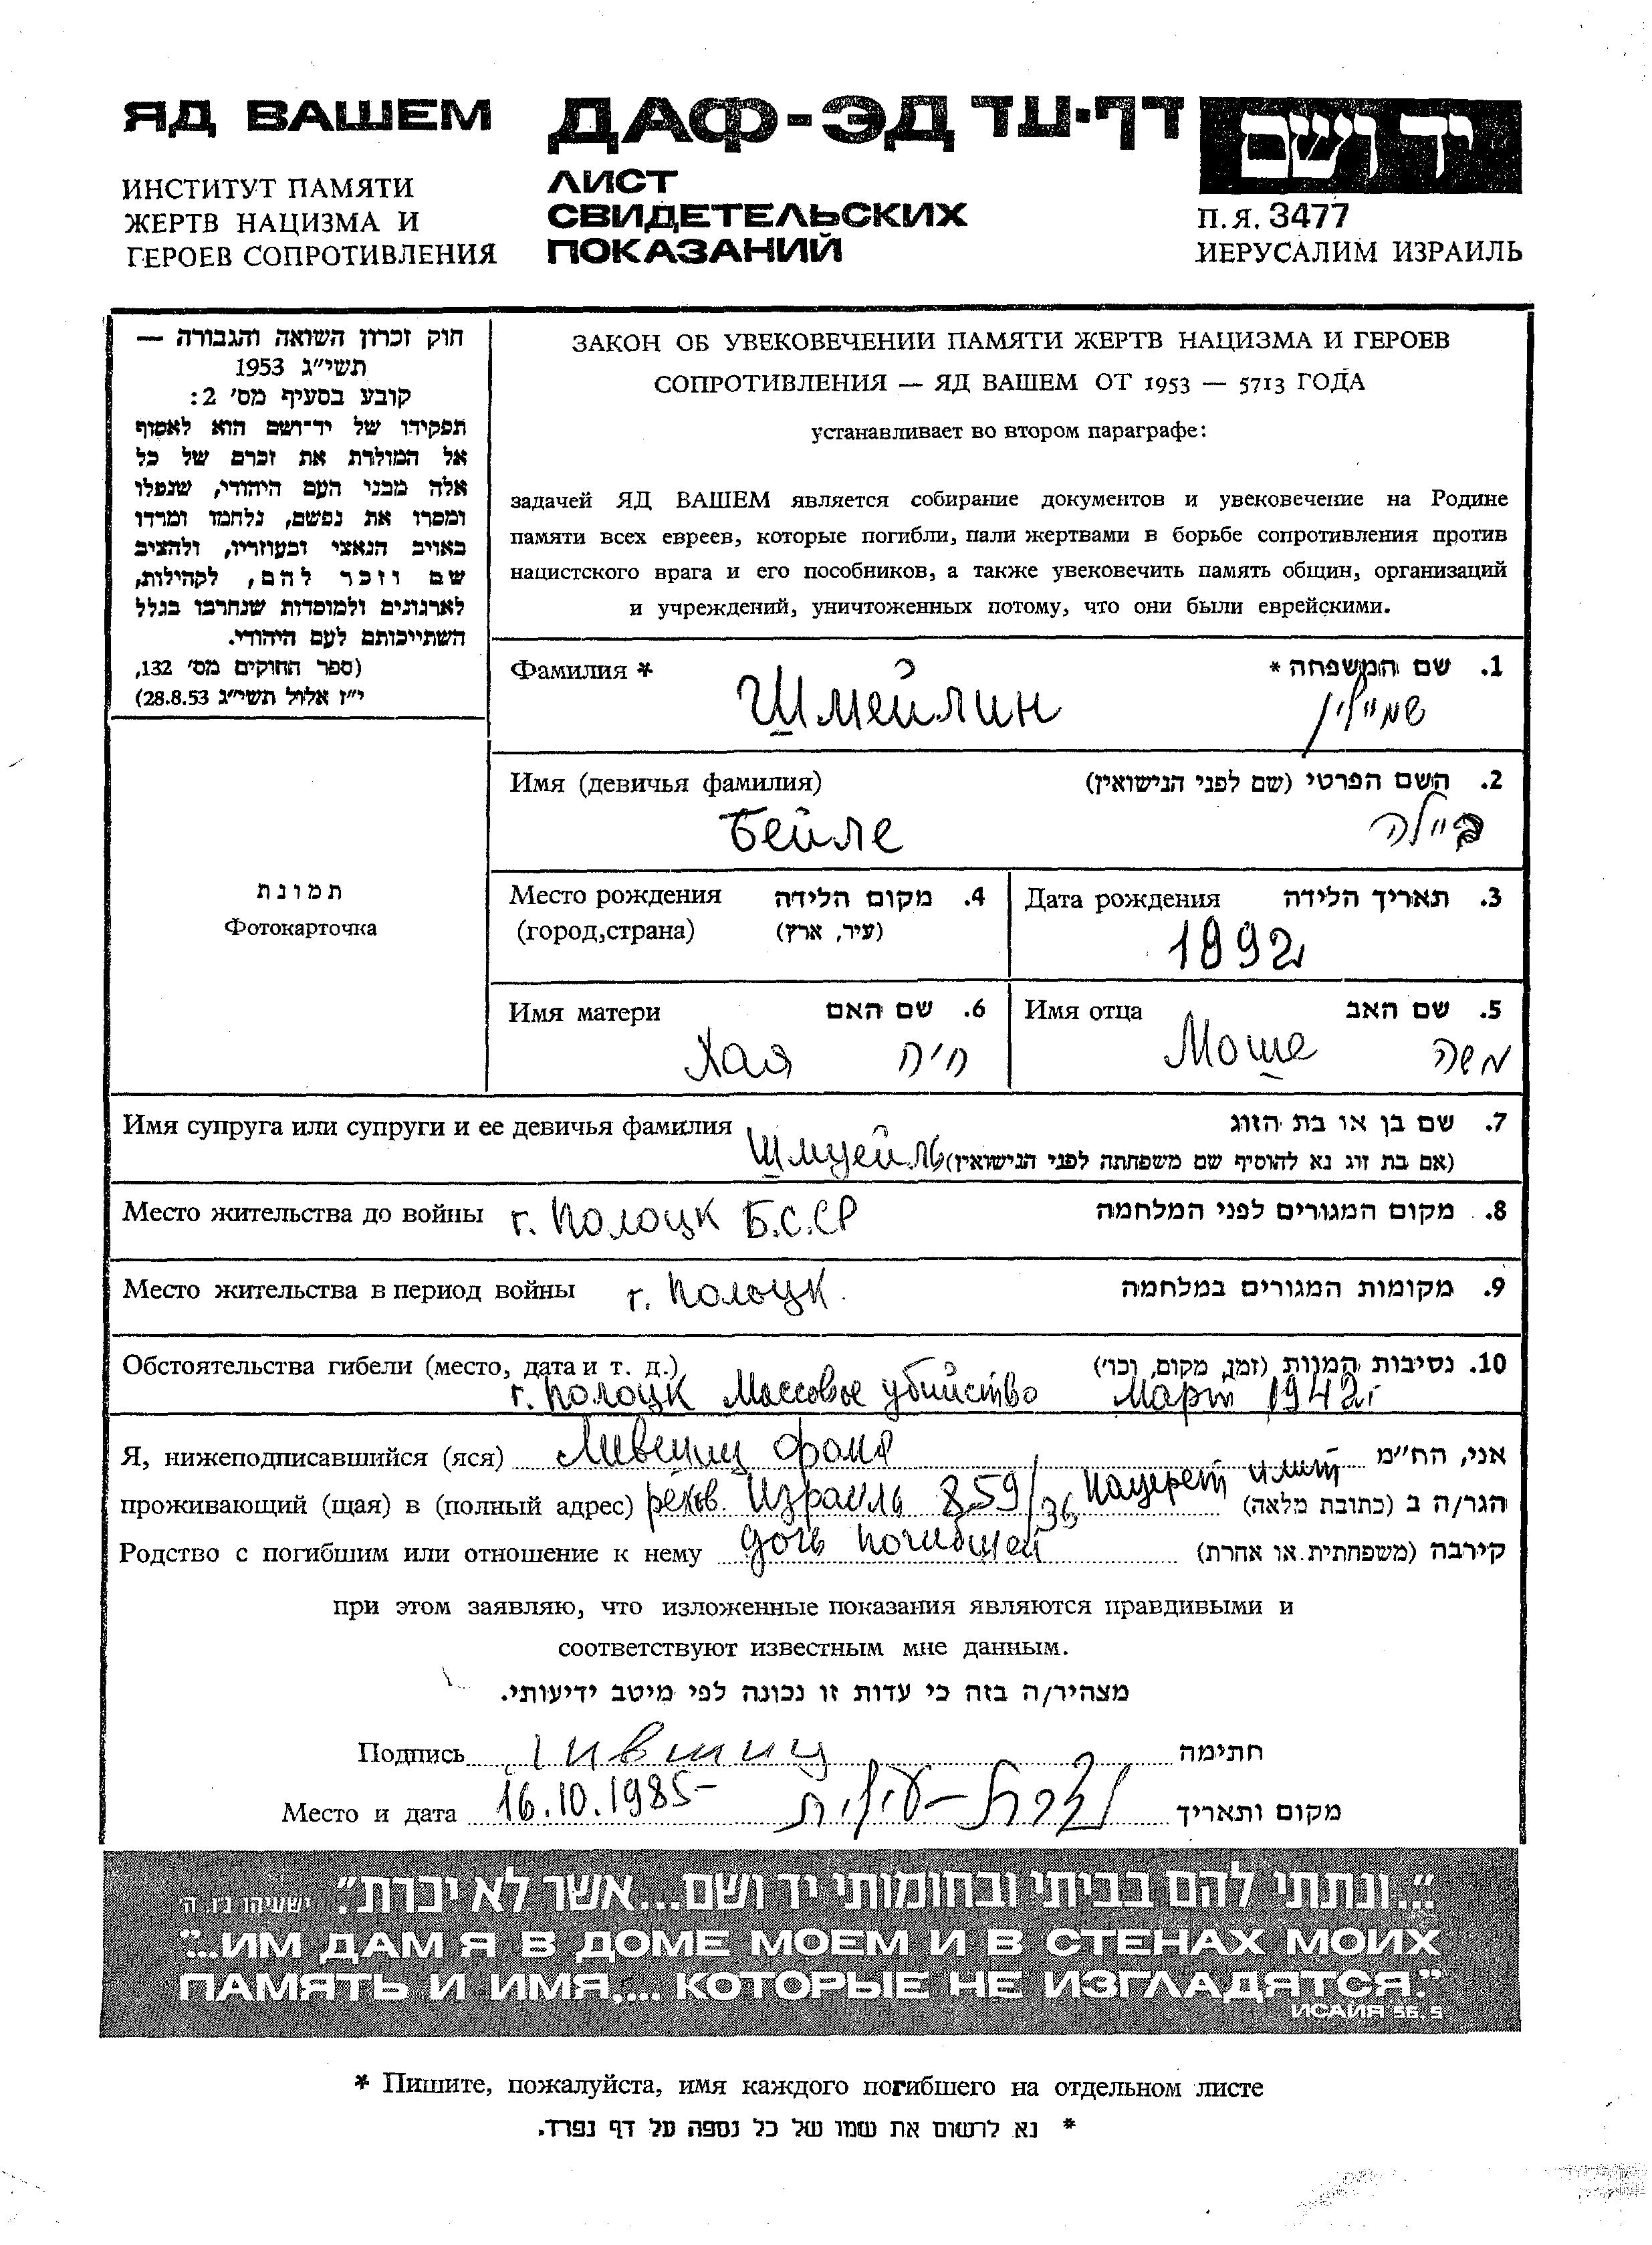 ЯД ВАШЕМ
ИНСТИТУТ ПАМЯТИ
ЖЕРТВ НАЦИЗМА И
ГЕРОЕВ СОПРОТИВЛЕНИЯ
ДАФ-ЭД דף-עד
ЛИСТ
СВИДЕТЕЛЬСКИХ
ПОКАЗАНИЙ
יד ושם
П.Я. 3477
ИЕРУСАЛИМ ИЗРАИЛЬ
חוק זכרון השואה והגבורה —
תשי״ג 1953
קובע בסעיף מס׳ 2:
תפקידו של יד־ושם הוא לאסוף
אל המולדת את זכרם של כל
אלה מבני העם היהודי, שנפלו
ומסרו את נפשם, נלחמו ומרדו
באויב הנאצי ובעוזריו, ולהציב
שם וזכר להם, לקהילות,
לארגונים ולמוסדות שנחרבו בגלל
השתייכותם לעם היהודי.
(ספר החוקים מס׳ 132,
י״ז אלול תשי״ג 28.8.53)
ЗАКОН ОБ УВЕКОВЕЧЕНИИ ПАМЯТИ ЖЕРТВ НАЦИЗМА И ГЕРОЕВ
СОПРОТИВЛЕНИЯ — ЯД ВАШЕМ ОТ 1953 — 5713 ГОДА
устанавливает во втором параграфе:
задачей ЯД ВАШЕМ является собирание документов и увековечение на Родине
памяти всех евреев, которые погибли, пали жертвами в борьбе сопротивления против
нацистского врага и его пособников, а также увековечить память общин, организаций
и учреждений, уничтоженных потому, что они были еврейскими.
Фамилия * 1. שם המשפחה *
Шмейлин שמיילין
Имя (девичья фамилия) 2. השם הפרטי (שם לפני הנישואין)
Бейле ביילה
תמונת
Фотокарточка
Место рождения 4. מקום הלידה
(город,страна) (עיר, ארץ)
Дата рождения 3. תאריך הלידה
1892
Имя матери 6. שם האם
Хая חיה
Имя отца 5. שם האב
Моше משה
Имя супруга или супруги и ее девичья фамилия 7. שם בן או בת הזוג
Шмуейль (אם בת זוג נא להוסיף שם משפחתה לפני הנישואין)
Место жительства до войны г. Полоцк Б.С.СР 8. מקום המגורים לפני המלחמה
Место жительства в период войны г. Полоцк. 9. מקומות המגורים במלחמה
Обстоятельства гибели (место, дата и т. д.) 10. נסיבות המוות (זמן, מקום, וכו׳)
г. Полоцк Массовое убийство Март 1942г
Я, нижеподписавшийся (яся) Лившиц Фаня אני, הח״מ
проживающий (щая) в (полный адрес) рехов. Израиль 859/36 Нацерет илит הגר/ה ב (כתובת מלאה)
Родство с погибшим или отношение к нему дочь погибшей קירבה (משפחתית או אחרת)
при этом заявляю, что изложенные показания являются правдивыми и
соответствуют известным мне данным.
מצהיר/ה בזה כי עדות זו נכונה לפי מיטב ידיעותי.
Подпись Лившиц חתימה
Место и дата 16.10.1985 נצרת-עילית מקום ותאריך
״..ונתתי להם בביתי ובחומותי יד ושם...אשר לא יכרת״. ישעיהו נ״ו, ה׳
"...ИМ ДАМ Я В ДОМЕ МОЕМ И В СТЕНАХ МОИХ
ПАМЯТЬ И ИМЯ.... КОТОРЫЕ НЕ ИЗГЛАДЯТСЯ."
ИСАИЯ 56, 5
* Пишите, пожалуйста, имя каждого погибшего на отдельном листе
* נא לרשום את שמו של כל נספה על דף נפרד.